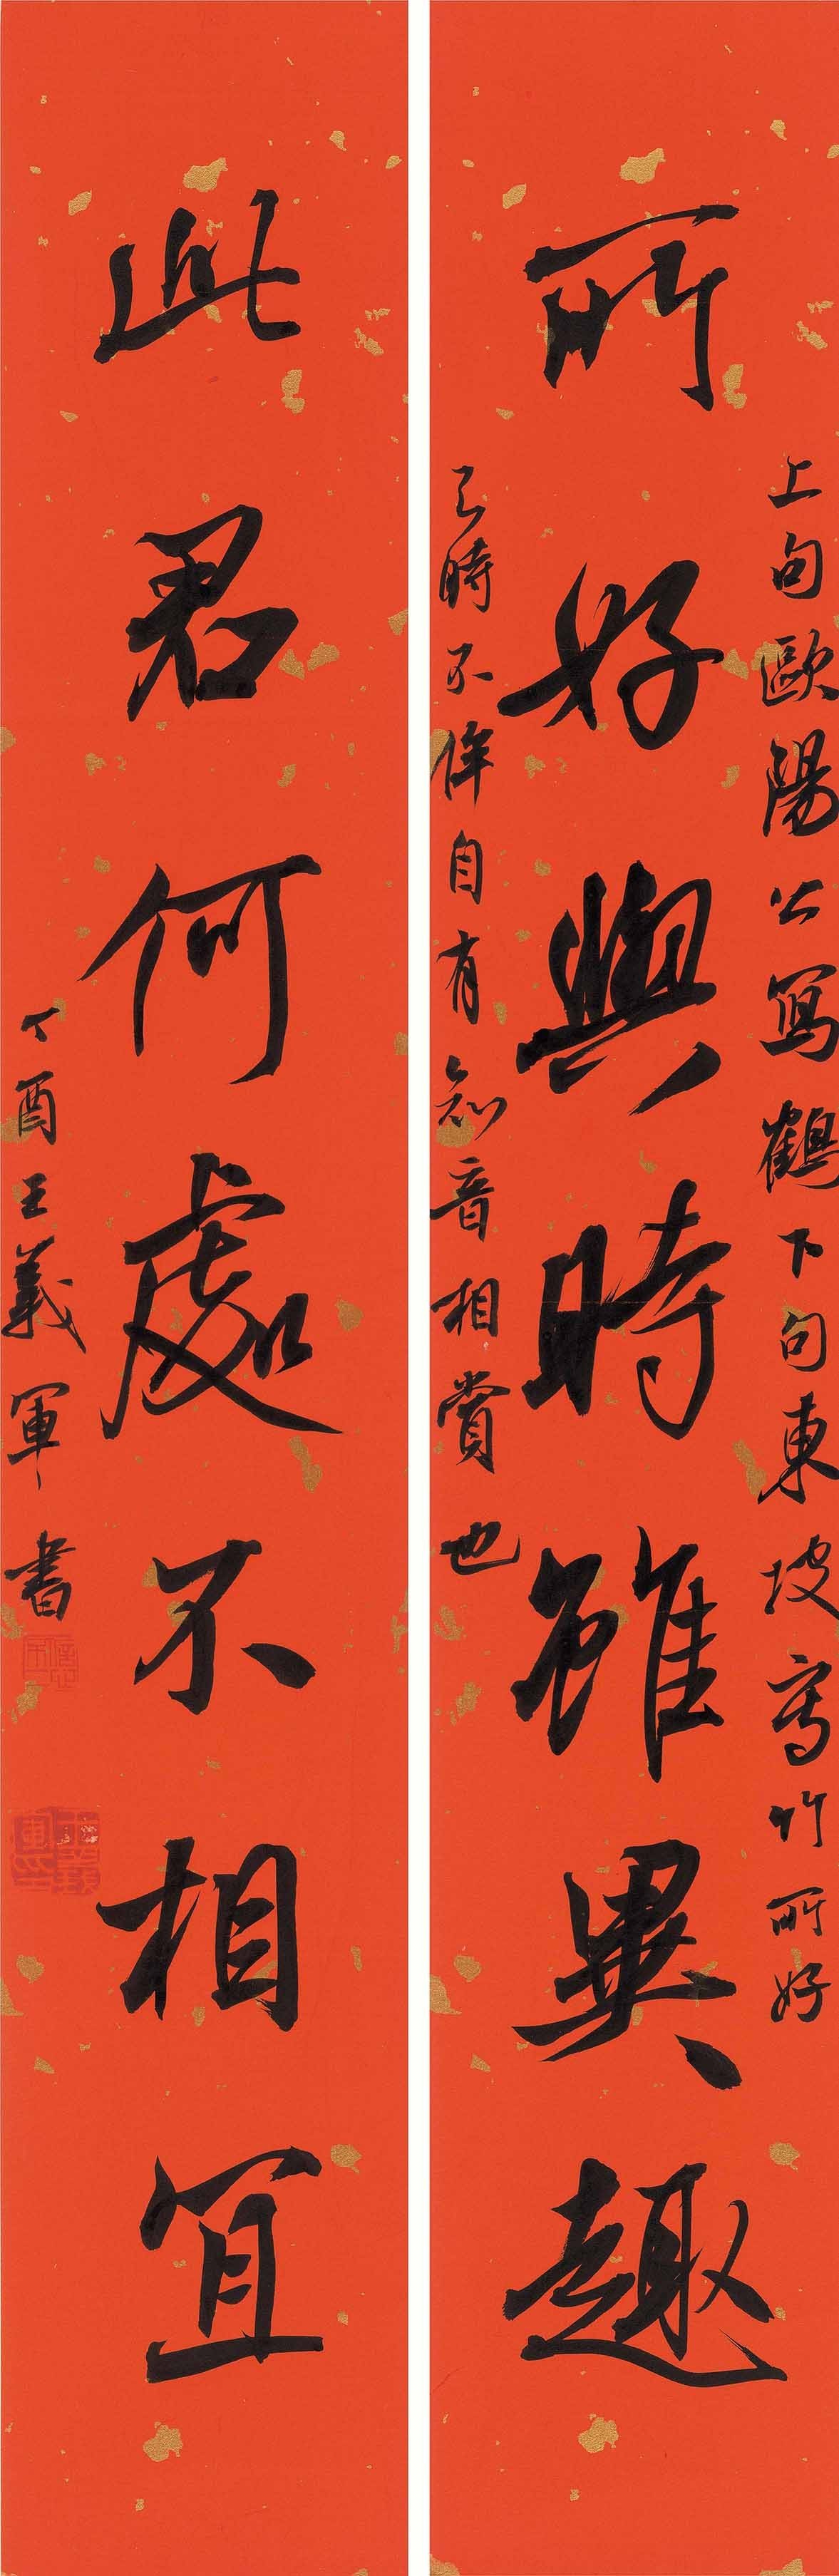 上句歐陽公寫鶴下句東坡寫竹所好
所好與時雖異趣
与時不侔自有知音相賞也
此君何處不相宜
丁酉王義軍書
王義軍印